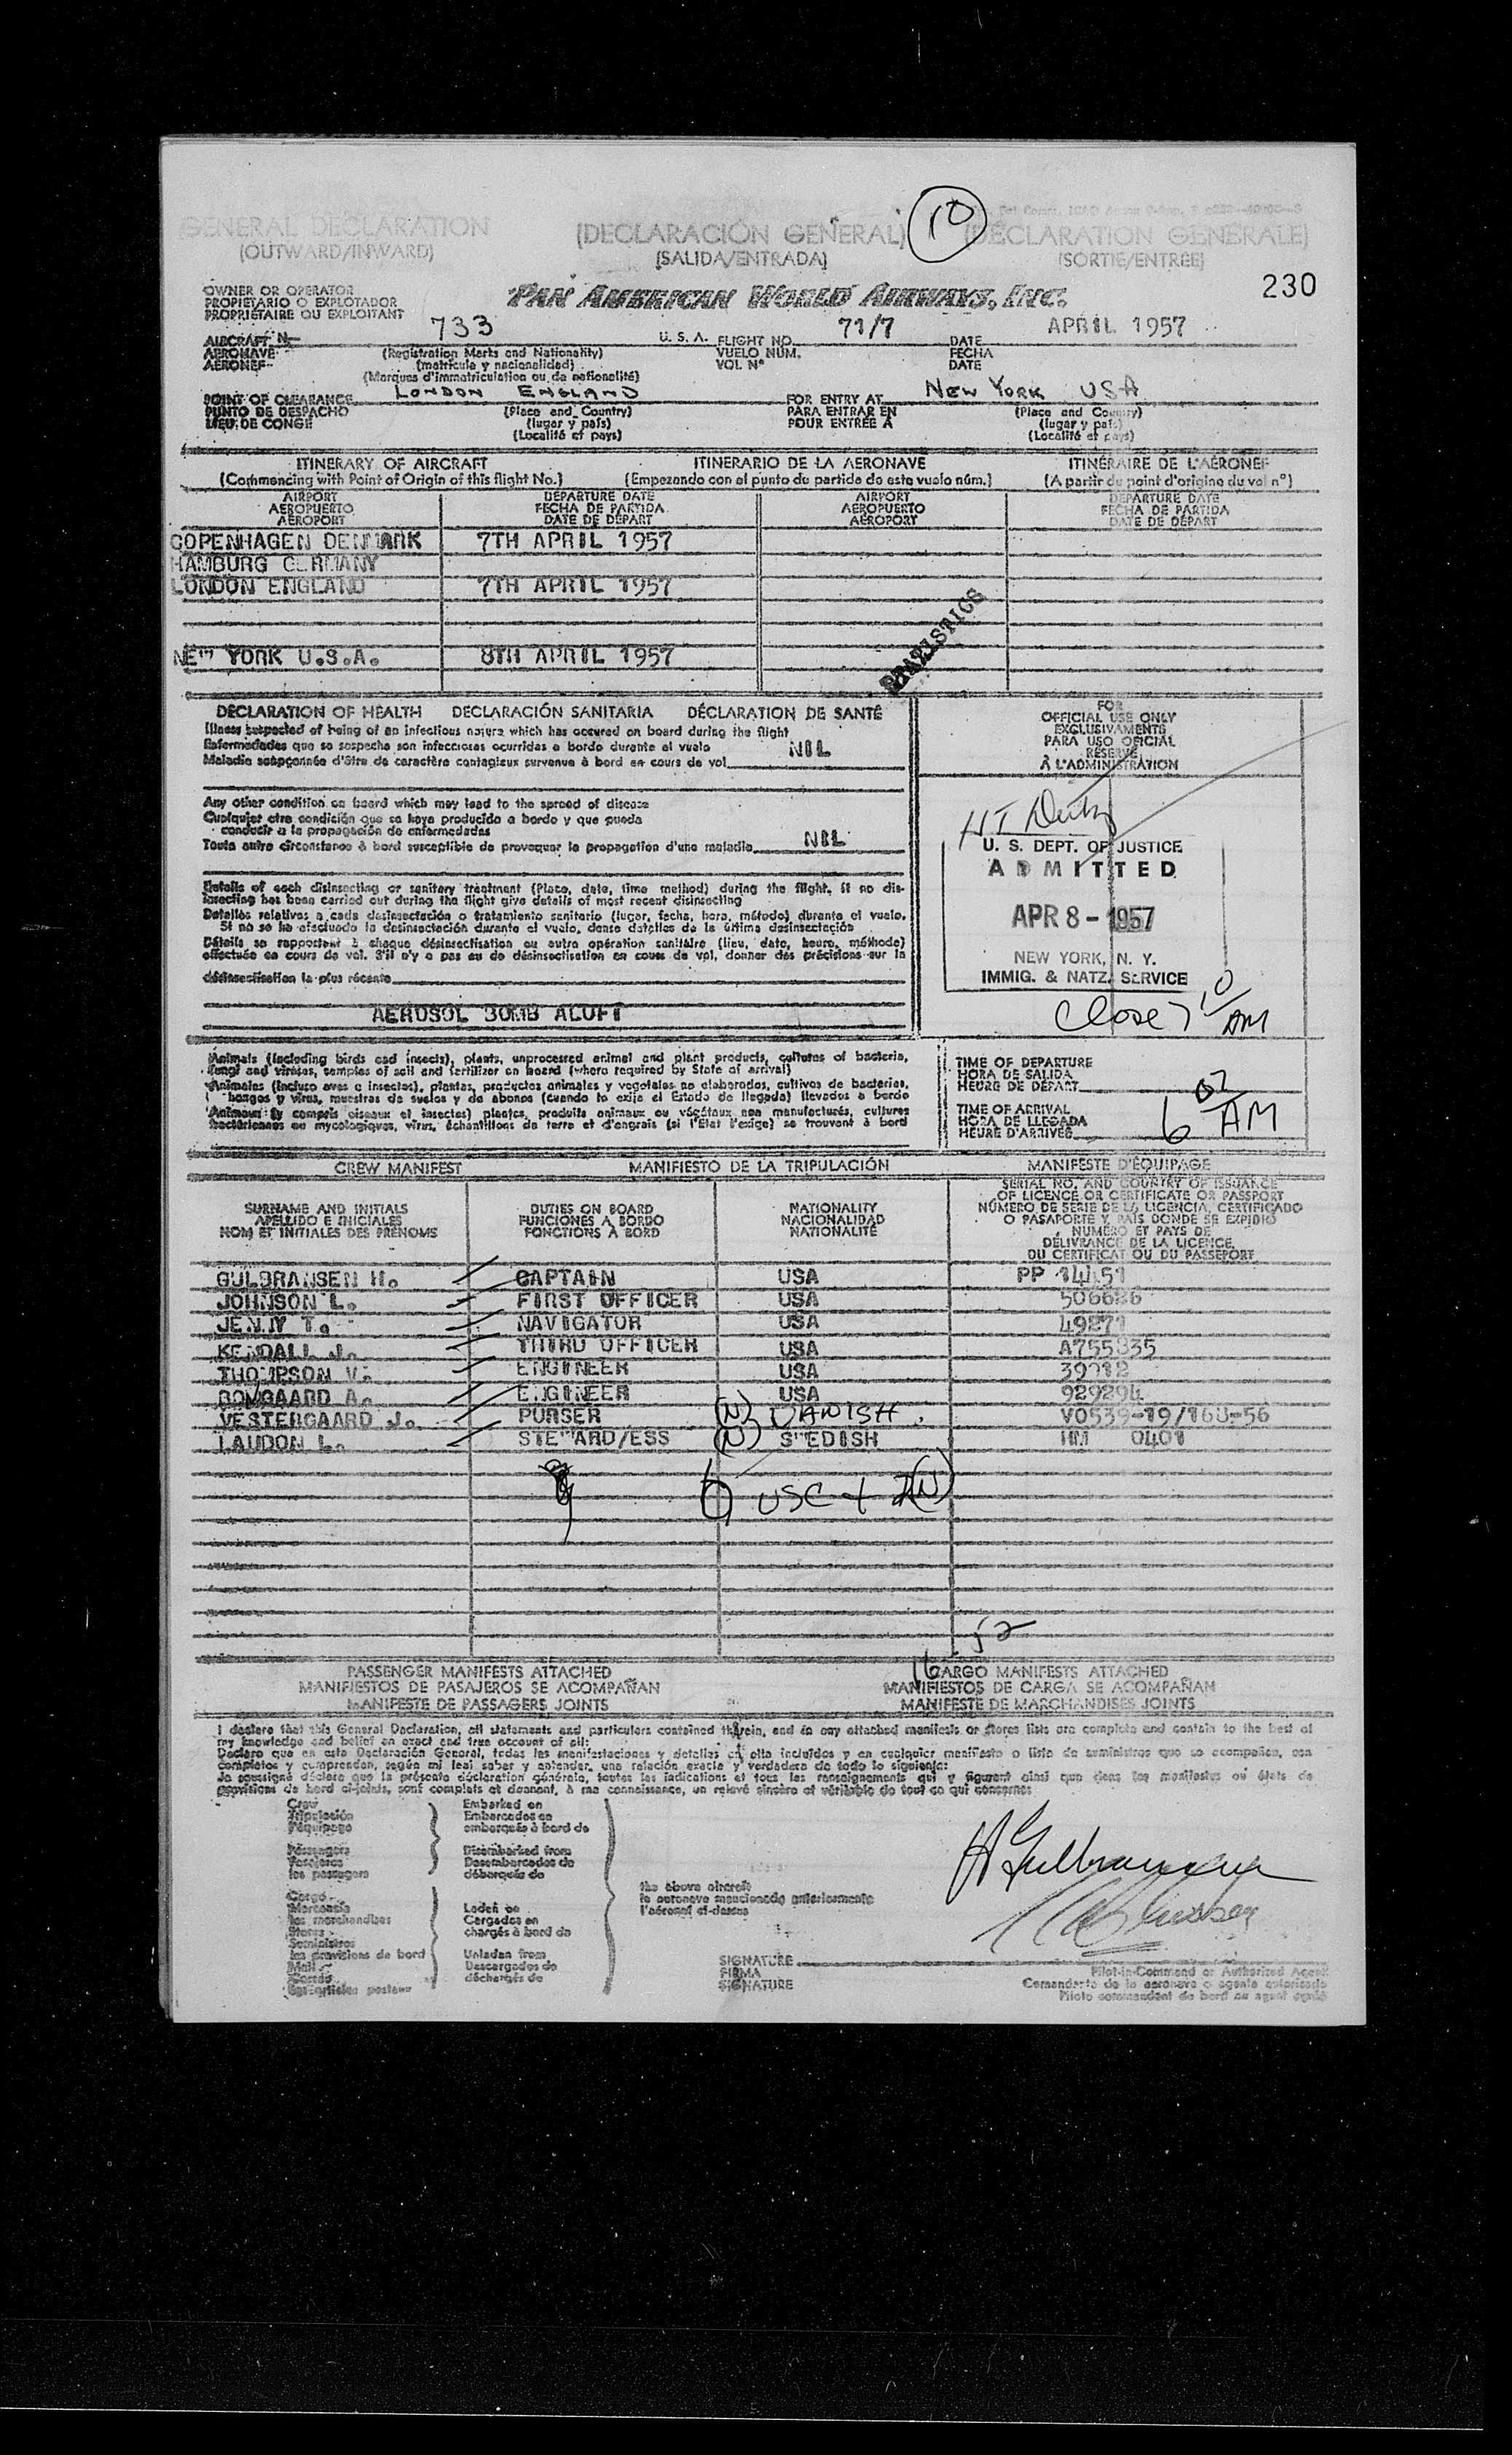 GENERAL DECLARATION (DECLARACIÓN GENERAL) (DÉCLARATION GÉNÉRALE)
(OUTWARD/INWARD) (SALIDA/ENTRADA) (SORTIE/ENTRÉE)
10
230
OWNER OR OPERATOR
PROPIETARIO O EXPLOTADOR
PROPRIÉTAIRE OU EXPLOITANT
PAN AMERICAN WORLD AIRWAYS, INC.
AIRCRAFT N- 733 U. S. A. FLIGHT NO. 71/7 DATE APRIL 1957
AERONAVE (Registration Marks and Nationality) VUELO NÚM. FECHA
AÉRONEF (matrícula y nacionalidad) VOL Nº DATE
(Marques d'immatriculation ou de nationalité)
POINT OF CLEARANCE LONDON ENGLAND FOR ENTRY AT NEW YORK USA
PUNTO DE DESPACHO (Place and Country) PARA ENTRAR EN (Place and Country)
LIEU DE CONGÉ (lugar y país) POUR ENTRÉE À (lugar y país)
(Localité et pays) (Localité et pays)
ITINERARY OF AIRCRAFT ITINERARIO DE LA AERONAVE ITINÉRAIRE DE L'AÉRONEF
(Commencing with Point of Origin of this flight No.) (Empezando con el punto de partida de este vuelo núm.) (A partir du point d'origine du vol nº)
AIRPORT DEPARTURE DATE AIRPORT DEPARTURE DATE
AEROPUERTO FECHA DE PARTIDA AEROPUERTO FECHA DE PARTIDA
AÉROPORT DATE DE DÉPART AÉROPORT DATE DE DÉPART
COPENHAGEN DENMARK 7TH APRIL 1957
HAMBURG GERMANY
LONDON ENGLAND 7TH APRIL 1957
NEW YORK U.S.A. 8TH APRIL 1957
DECLARATION OF HEALTH DECLARACIÓN SANITARIA DÉCLARATION DE SANTÉ
Illness suspected of being of an infectious nature which has occured on board during the flight
Enfermedades que se sospecha son infecciosas ocurridas a bordo durante el vuelo
Maladie soupçonnée d'être de caractère contagieux survenue à bord en cours de vol NIL
Any other condition on board which may lead to the spread of disease
Cualquier otra condición que se haya producido a bordo y que pueda
conducir a la propagación de enfermedades
Toute autre circonstance à bord susceptible de provoquer la propagation d'une maladie NIL
Details of each disinsecting or sanitary treatment (Place, date, time method) during the flight. If no dis-
insecting has been carried out during the flight give details of most recent disinsecting
Detalles relativos a cada desinsectación o tratamiento sanitario (lugar, fecha, hora, método) durante el vuelo.
Si no se ha efectuado la desinsectación durante el vuelo, dense detalles de la última desinsectación
Détails se rapportant à chaque désinsectisation ou autre opération sanitaire (lieu, date, heure, méthode)
effectuée en cours de vol. S'il n'y a pas eu de désinsectisation en cours de vol, donner des précisions sur la
désinsectisation la plus récente
AEROSOL BOMB ALOFT
FOR
OFFICIAL USE ONLY
EXCLUSIVAMENTE
PARA USO OFICIAL
RÉSERVÉ
À L'ADMINISTRATION
U. S. DEPT. OF JUSTICE
ADMITTED
APR 8 - 1957
NEW YORK, N. Y.
IMMIG. & NATZ. SERVICE
Close 7 10 AM
Animals (including birds and insects), plants, unprocessed animal and plant products, cultures of bacteria,
fungi and viruses, samples of soil and fertilizer on board (where required by State of arrival)
Animales (incluso aves e insectos), plantas, productos animales y vegetales no elaborados, cultivos de bacterias,
hongos y virus, muestras de suelos y de abonos (cuando lo exija el Estado de llegada) llevados a bordo
Animaux (y compris oiseaux et insectes) plantes, produits animaux ou végétaux non manufacturés, cultures
bactériennes ou mycologiques, virus, échantillons de terre et d'engrais (si l'État l'exige) se trouvant à bord
TIME OF DEPARTURE
HORA DE SALIDA
HEURE DE DÉPART
TIME OF ARRIVAL
HORA DE LLEGADA
HEURE D'ARRIVÉE 6 02 AM
CREW MANIFEST MANIFIESTO DE LA TRIPULACIÓN MANIFESTE D'ÉQUIPAGE
SURNAME AND INITIALS DUTIES ON BOARD NATIONALITY SERIAL NO. AND COUNTRY OF ISSUANCE
APELLIDO E INICIALES FUNCIONES A BORDO NACIONALIDAD OF LICENCE OR CERTIFICATE OR PASSPORT
NOM ET INITIALES DES PRÉNOMS FONCTIONS À BORD NATIONALITÉ NÚMERO DE SERIE DE LA LICENCIA, CERTIFICADO
O PASAPORTE Y PAÍS DONDE SE EXPIDIÓ
NUMÉRO ET PAYS DE
DÉLIVRANCE DE LA LICENCE,
DU CERTIFICAT OU DU PASSEPORT
GULBRANSEN H. CAPTAIN USA PP 14451
JOHNSON L. FIRST OFFICER USA 506626
JENNY T. NAVIGATOR USA 49271
KENDALL J. THIRD OFFICER USA
THOMPSON V. ENGINEER USA
BOMGAARD A. ENGINEER USA 929294
VESTERGAARD J. PURSER (N) DANISH V0539-19/168-56
LAUDON L. STEWARD/ESS (N) SWEDISH HM 0401
6 USC + 2(N)
52
16
PASSENGER MANIFESTS ATTACHED CARGO MANIFESTS ATTACHED
MANIFIESTOS DE PASAJEROS SE ACOMPAÑAN MANIFIESTOS DE CARGA SE ACOMPAÑAN
MANIFESTE DE PASSAGERS JOINTS MANIFESTE DE MARCHANDISES JOINTS
I declare that this General Declaration, all statements and particulars contained therein, and in any attached manifests or stores lists are complete and contain to the best of
my knowledge and belief an exact and true account of all:
Declaro que en esta Declaración General, todas las manifestaciones y detalles en ella incluídos y en cualquier manifiesto o lista de suministros que se acompañen, son
completos y comprenden, según mi leal saber y entender, una relación exacta y verdadera de todo lo siguiente:
Je soussigné déclare que la présente déclaration générale, toutes les indications et tous les renseignements qui y figurent ainsi que dans les manifestes ou états de
provisions de bord ci-joints, sont complets et donnent, à ma connaissance, un relevé sincère et véritable de tout ce qui concerne:
Crew Embarked on
Tripulación Embarcados en
l'équipage embarqués à bord de
Passengers Disembarked from
Pasajeros Desembarcados de
les passagers débarqués de
the above aircraft
la aeronave mencionada anteriormente
l'aéronef ci-dessus
Cargo
Mercancía Laden on
les marchandises Cargados en
Stores chargés à bord de
Suministros
les provisions de bord Unladen from
Mail Descargados de
Correo déchargés de
H Gulbransen
SIGNATURE
FIRMA
SIGNATURE
Pilot-in-Command or Authorized Agent
Comandante de la aeronave o agente autorizado
Pilote commandant de bord ou agent agréé